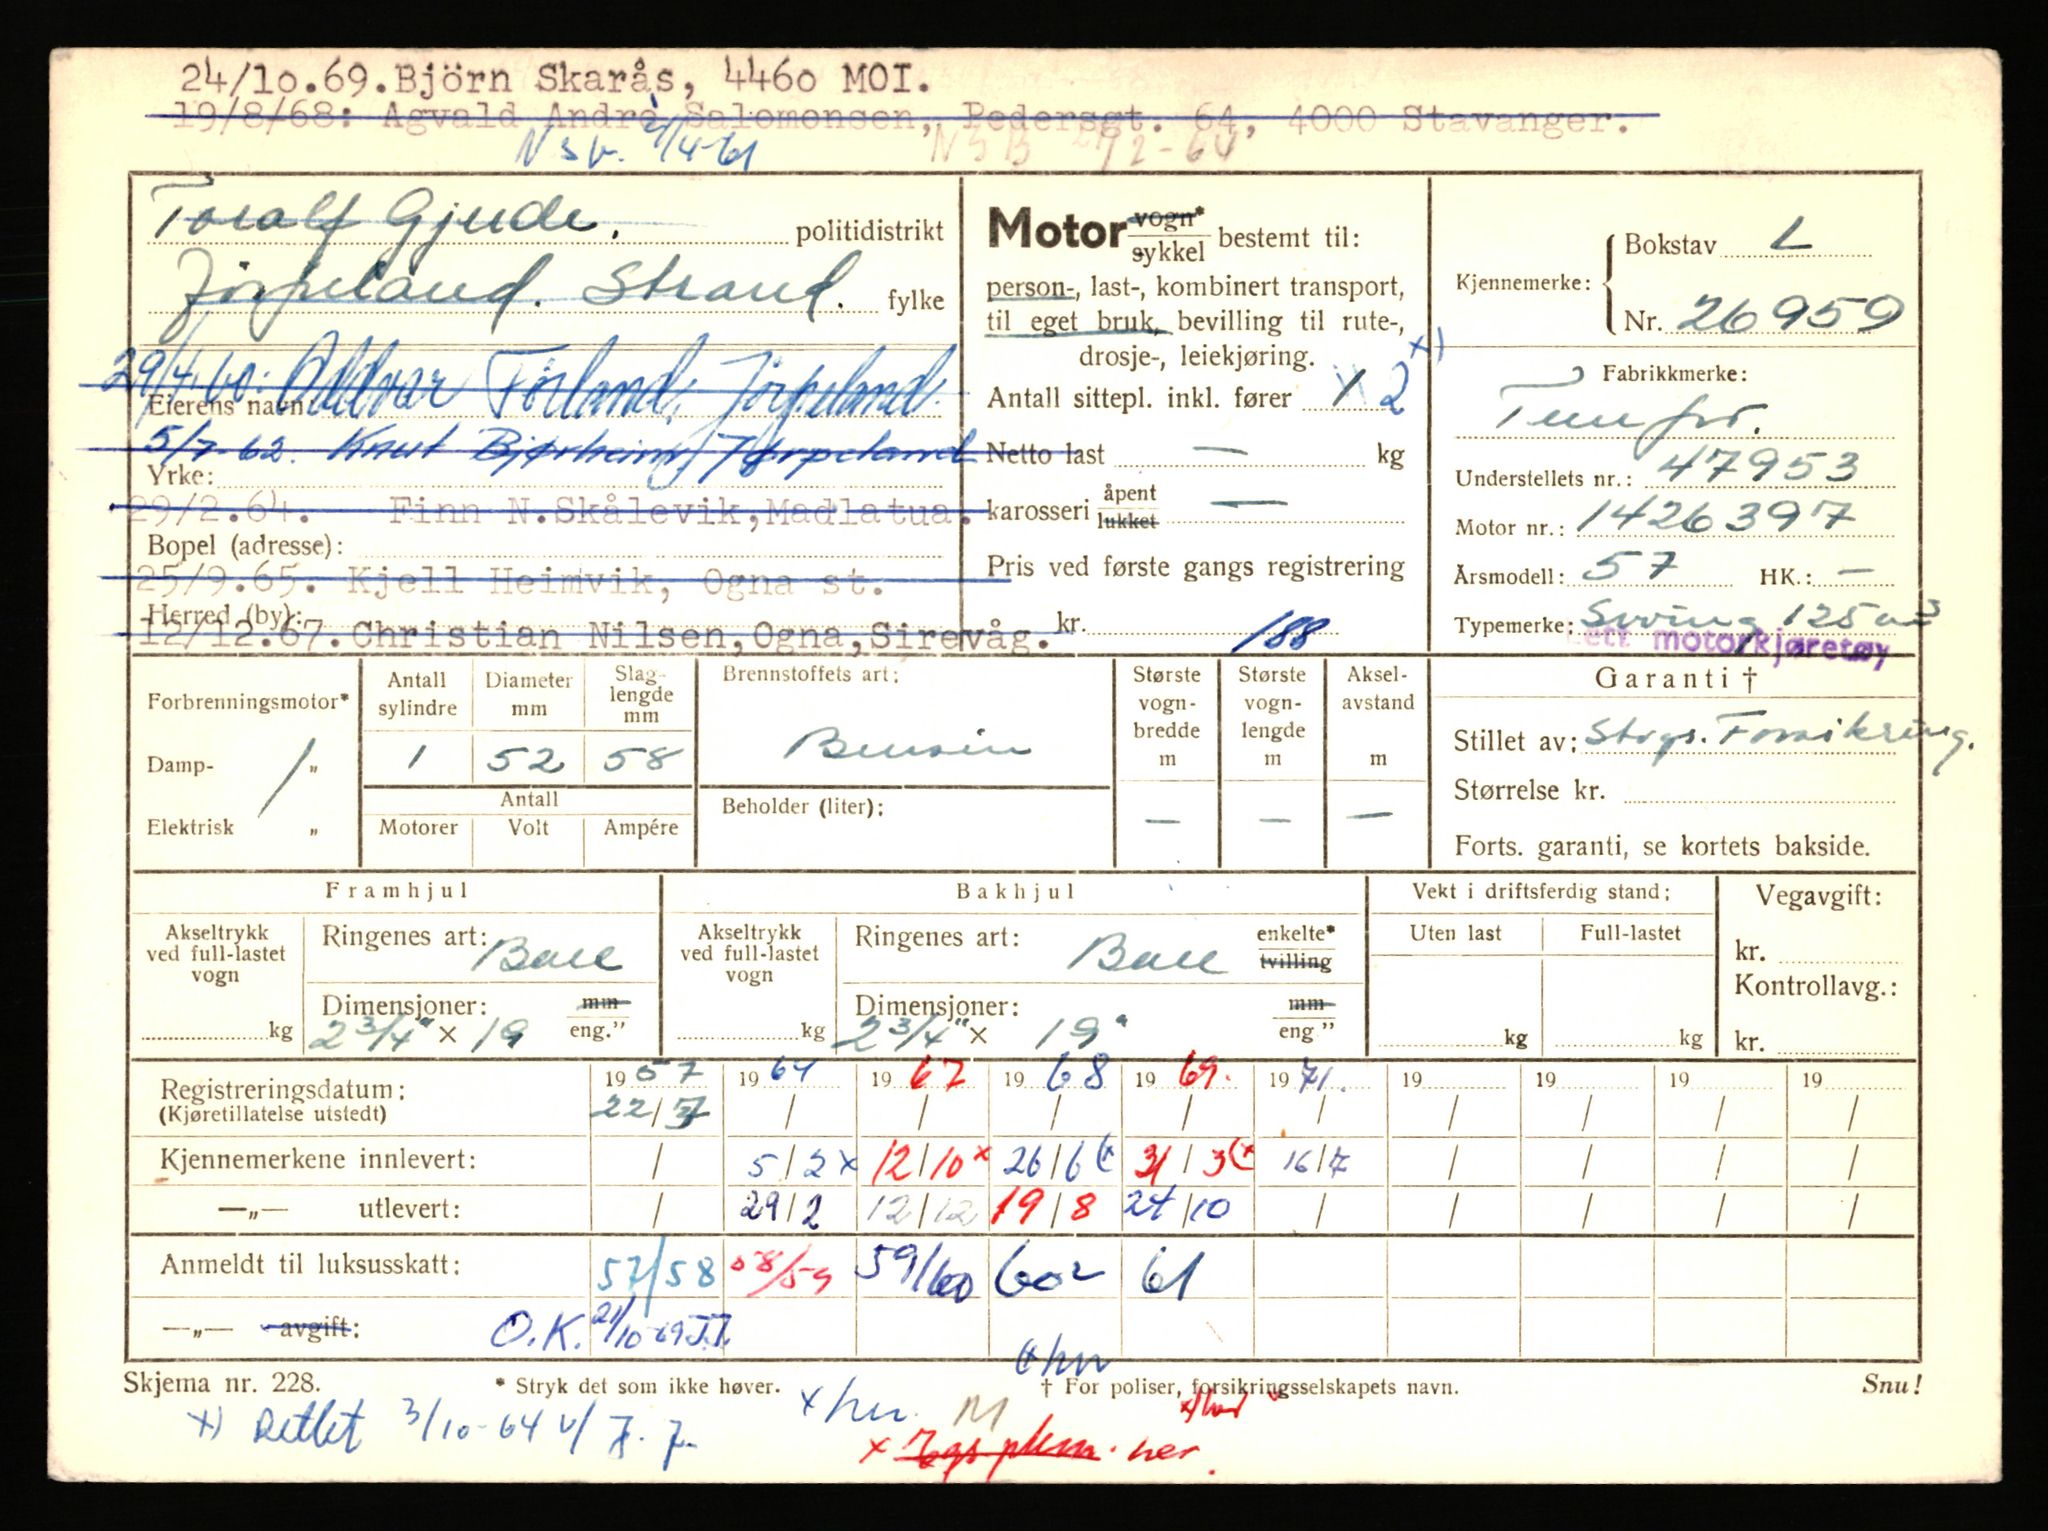 24/10.69. Björn Skarås, 4460 MOI.
19/8/68: Agvald André Salomonsen, Pedersgt. 64, 4000 Stavanger.
4/4-61 NSB 27/2-64
Toralf Gjude. politidistrikt
Jørpeland. Strand. fylke
29/4-60: Oddvar Förland, Jörpeland.
Eierens navn:
5/7-62. Knut Bjørheim, Jørpeland
Yrke:
29/2.64. Finn N. Skålevik, Madlatua.
Bopel (adresse):
25/9.65. Kjell Heimvik, Ogna st.
Herred (by):
12/12.67. Christian Nilsen, Ogna, Sirevåg.
Motor vogn* sykkel bestemt til:
person-, last-, kombinert transport,
til eget bruk, bevilling til rute-,
drosje-, leiekjøring.
Antall sittepl. inkl. fører 1 2 x)
Netto last — kg
karosseri åpent lukket —
Pris ved første gangs registrering
kr. 188
Kjennemerke: Bokstav L
Nr. 26959
Fabrikkmerke:
Tempo.
Understellets nr.: 47953
Motor nr.: 1426397
Årsmodell: 57 HK.: —
Typemerke: Swing 125 cm3
Lett motorkjøretøy
Forbrenningsmotor*
Damp- „
Elektrisk „
Antall sylindre 1
Diameter mm 52
Slaglengde mm 58
Antall
Motorer Volt Ampére
Brennstoffets art:
Bensin
Beholder (liter):
Største vognbredde m —
Største vognlengde m —
Akselavstand m —
Garanti †
Stillet av: Stvgs. Forsikring.
Størrelse kr.
Forts. garanti, se kortets bakside.
Framhjul
Akseltrykk ved full-lastet vogn kg
Ringenes art: Ball
Dimensjoner: mm
2 3/4" x 19 eng."
Bakhjul
Akseltrykk ved full-lastet vogn kg
Ringenes art: Ball enkelte* tvilling
Dimensjoner: mm
2 3/4" x 19" eng"
Vekt i driftsferdig stand:
Uten last Full-lastet
kg kg
Vegavgift:
kr.
Kontrollavg.:
kr.
Registreringsdatum: 1957 1964 1967 1968 1969. 1971. 19 19 19 19
(Kjøretillatelse utstedt) 22/3 / / / / / / / / /
Kjennemerkene innlevert: / 5/2 x 12/10 x 26/6 (x 31/3 (x 16/7 / / / /
—„— utlevert: / 29/2 12/12 19/8 24/10 / / / / /
Anmeldt til luksusskatt: 57/58 58/59 59/60 602 61
—„— avgift: O.K. 21/10-69 J.J.
Skjema nr. 228. * Stryk det som ikke høver. † For poliser, forsikringsselskapets navn. Snu!
x) Rettet 3/10-64 v/ J. J. x her.